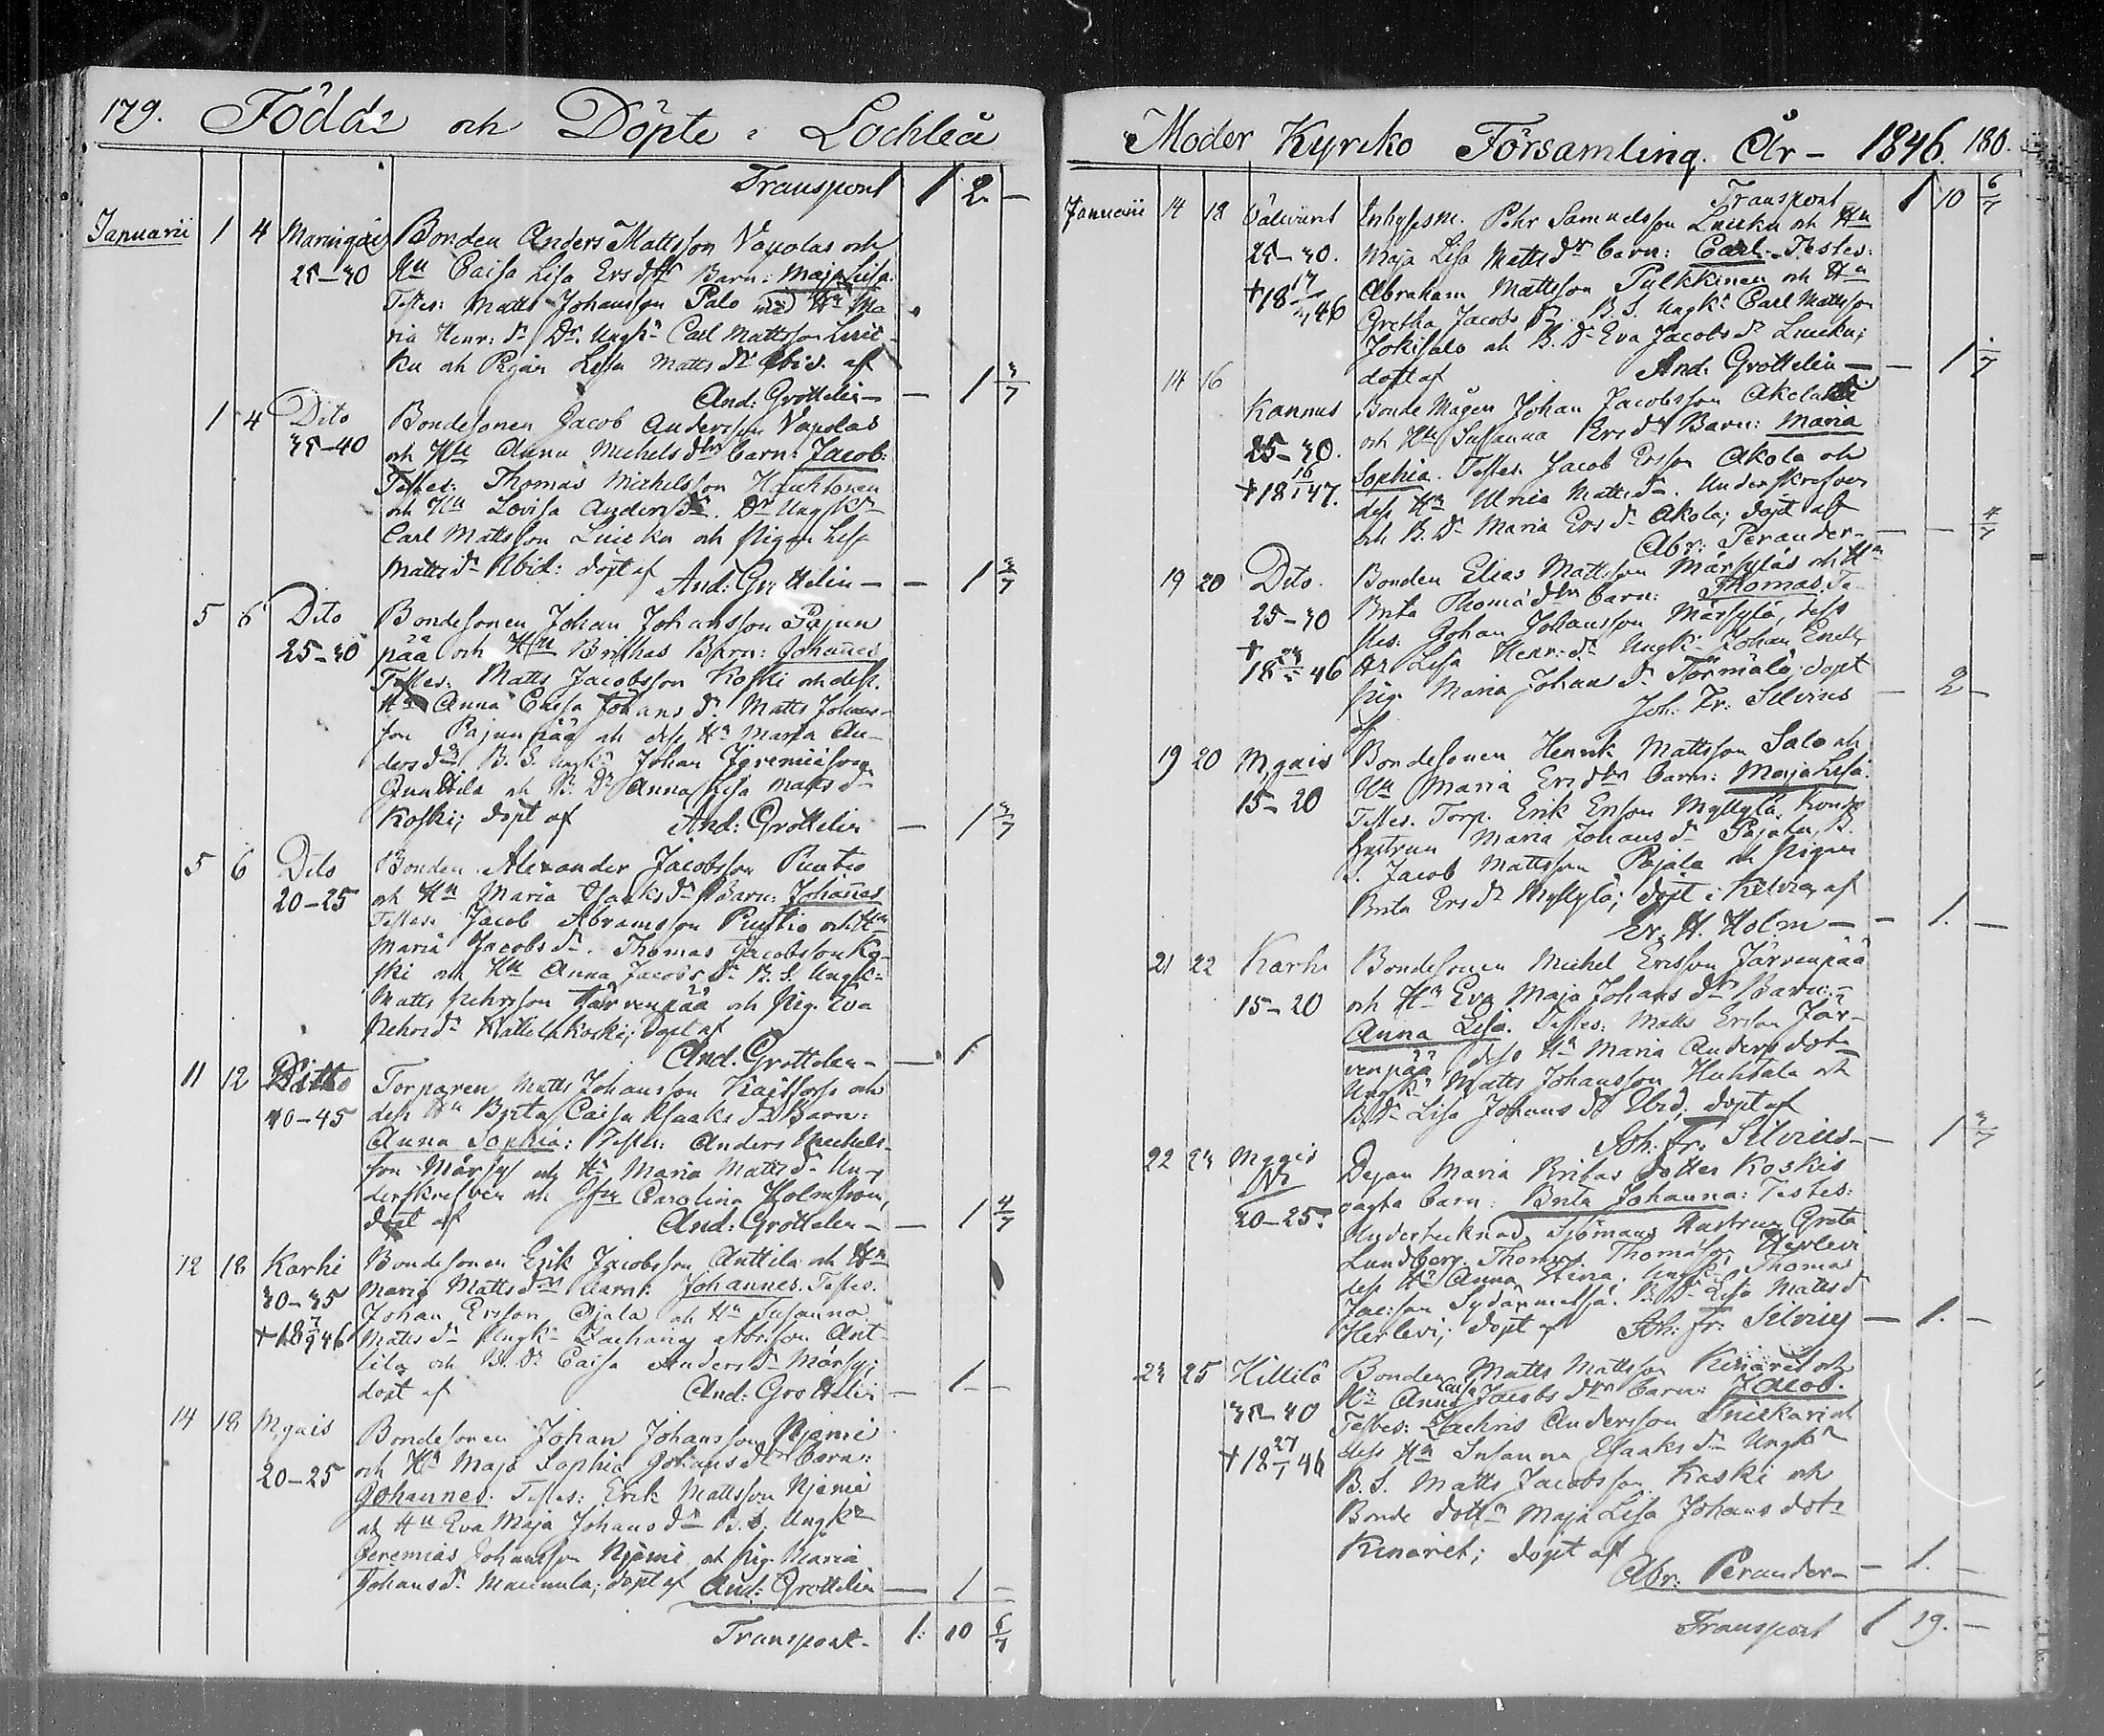 179. Födde och Döpte i Lochteå
Transport 1 2 —
Januarii 1 4 Maringais Bonden Anders Mattsson Napolas och
25–30 Hu Caisa Lisa Ersdtr Barn: Maja Lisa.
Testes: Matts Johansson Palo med Hu Ma
ria Henr: dr Dr. Ungk: Carl Mattsson
ku och Pigan Lisa Matts dr ibid. af
And: Grottelin — — 1 3/7
1 4 Dito Bondesonen Jacob Andersson Napolas
35–40 och Hu Anna Michels dtr barn: Jacob:
Testes: Thomas Michelsson
och Hu Lovisa Anders dr. Dr Ungk
Carl Mattsson och Pigan Lisa
Matts dr Ibid: döpt af And: Grottelin — — 1 3/7
5 6 Dito Bondesonen Johan Johansson Pajun
25–30 pää och Hu Brithas Barn: Johannes
Testes: Matts Jacobsson Koski och dess.
Hu Anna Caisa Johans dr. Matts Johans-
son Pajunpää och dess Hu Maria An-
ders dr B. S. Ungk: Johan Jeremiisson
och B. Dr Anna Lisa Matts dr
Koski; döpt af And: Grottelin — 1 3/7
5 6 Dito Bonden Alexander Jacobsson Puutio
20–25 och Hu Maria Isaks dr Barn: Johannes
Testes: Jacob Abramsson Puutio och Hu
Maria Jacobs dr. Thomas Jacobsson Ko-
ski och Hu Anna Jacobs dr B. S. Ungk:
Matts Pehrsson Järvenpää och Pig. Eva
Pehrs dr Kattilakoski; döpt af
And. Grottelin — — 1
11 12 Ditto Torparen Matts Johansson och
40–45 dess Hu Brita Caisa Isaaks dr Barn:
Anna Sophia: Testes: Anders Michels-
son Märsy och Hu Maria Matts dr Un-
derskrefven och Jfru Carolina Holmström,
döpt af And: Grottelin — — 1 4/7
12 18 Karhi Bondesonen Erik Jacobsson Anttila och Hu
30–35 Maria Matts dtr Barn: Johannes. Testes.
Johan Ersson Ojala och Hu Susanna
+18 7/9 46 Matts dr Ungk: Zacharias Abr:son Ant-
tila och B. Dr Caisa Anders dr Märsy;
döpt af And: Grottelin — 1 —
14 18 Mgais Bondesonen Johan Johansson Njemi
20–25 och Hu Maja Sophia Johans dtr barn:
Johannes. Testes: Erik Mattsson Njemi
och Hu Eva Maja Johans dr B. S. Ungk
Jeremias Johansson Njemi och Pig. Maria
Johans dr Maunula; döpt af And: Grottelin — 1 —
Transport 1: 10 6/7
Moder Kyrko Församling. År – 1846. 180.
Transport 1 10 6/7
Januarii 14 18 Välivirret Inhyses m. Pehr Samuelsson och Hu
25–30. Maja Lisa Matts dtr barn: Carl. Testes:
+18 17/7 46 Abraham Mattsson Pulkkinen och Hu
Gretha Jacobs dr B. S. Ungk: Carl Mattsson
Jokisalo och B. Dr Eva Jacobs dr
döpt af And: Grottelin — — 1 1/7
14 16 Kannus Bonde Mågen Johan Jacobsson Akola
25–30. och Hu Susanna Ers dr Barn: Maria
+18 16/1 47. Sophia. Testes. Jacob Ersson Akola och
dess Hu Ulrica Matts dr. Underskrefven
och B. Dr Maria Ers dr Akola; döpt af
Abr: Perander — — — 4/7
19 20 Dito. Bonden Elias Mattsson Märsyläs och Hu
25–30 Brita Thomæ dtr barn: Thomas. Te
stes: Johan Johansson Märsylä, dess
+18 46 Hu Lisa Henr: dr Ungk: Johan
Pig. Maria Johans dr Törmälä; döpt
af Joh. Fr: Silvius — 2 —
19 20 Mgais Bondesonen Henrik Mattsson Salo och
15–20 Hu Maria Ers dtr barn: Maja Lisa.
Testes. Torp. Erik Ersson Myllylä, Bonde
hustrun Maria Johans dr Pajala B.
S. Jacob Mattsson Pajala och Pigan
Brita Ers dr Myllylä; döpt i Kelvia, af
Er. H. Holm — — 1. —
21 22 Karhi Bondesonen Michel Ersson Järvenpää
15–20 och Hu Eva Maja Johans dtr Barn:
Anna Lisa. Testes: Matts Ersson Jär-
venpää dess Hu Maria Anders dotr
Ungk: Matts Johansson Huhtala och
B. Dr Lisa Johans dr Ibid; döpt af
Joh. Fr: Silvius — — 1 3/7
22 23 Mgais Pejan Maria Britas dotter Koskis
20–25: oägta barn: Brita Johanna: Testes:
Undertecknad, Sjömans Hustrun Greta
Lundberg. Thomas Thomasson Herlevi
dess Hu Anna Stina. Ungk: Thomas
Jac:son Sydänmetsä. B. Dr Lisa Matts dr
Herlevi; döpt af Joh: Fr: Silvius — 1. —
23 25 Hillilä Bonden Matts Mattsson Kinaret och
35–40 Hu Anna Caisa Jacobs dtr barn: Jacob.
Testes: Zachris Andersson Snickari och
+18 27/1 46 dess Hu Susanna Isaaks dr Ungk
B. S. Matts Jacobsson Kaski och
Bonde dottr Maja Lisa Johans dotr
Kinaret; döpt af
Abr: Perander — — 1. —
Transport 1 19. —